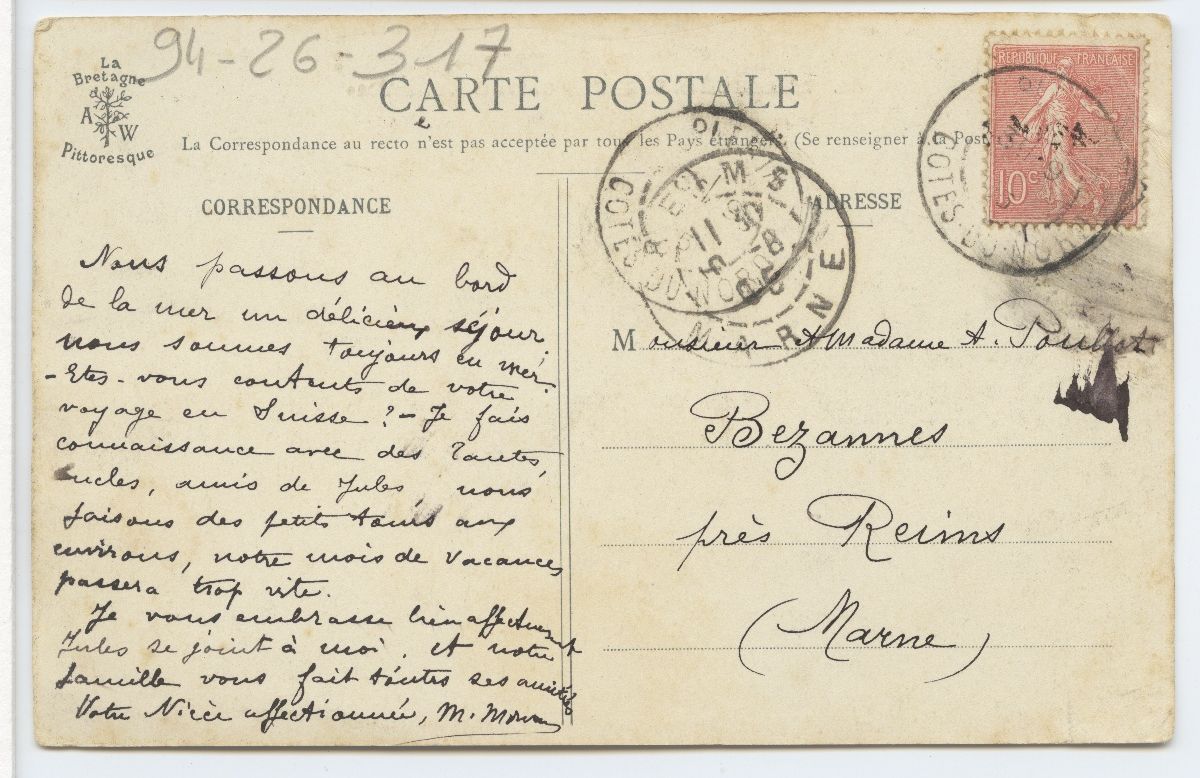 94-26-317
La
Bretagne
A W
Pittoresque
CARTE POSTALE
La Correspondance au recto n'est pas acceptée par tous les Pays étrangers. (Se renseigner à la Post
CORRESPONDANCE
ADRESSE
RÉPUBLIQUE FRANÇAISE
10c
COTES-DU-NORD
REIMS
MARNE
COTES-DU-NORD
Nous passons au bord
de la mer un délicieux séjour,
nous sommes toujours en mer.
-Etes-vous contents de votre
voyage en Suisse ? - Je fais
connaissance avec des tantes,
oncles, amis de Jules, nous
faisons des petits tours aux
environs, notre mois de vacances
passera trop vite.
Je vous embrasse bien affectuesmt
Jules se joint à moi, et notre
famille vous fait toutes ses amitiés
Votre Nièce affectionnée, M.
Monsieur & Madame A.
Bezannes
près Reims
(Marne)